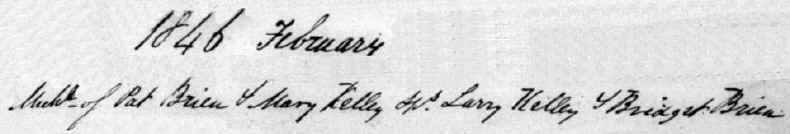 1846 February
Michl. of Pat Brien & Mary Kelley Sps. Larry Kelley & Bridget Brien